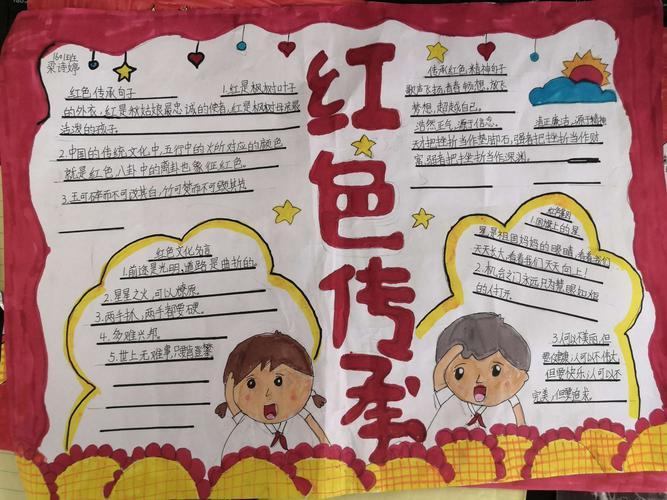 梁诗婷
红色传承
红色,传承句子
1.红是枫树对叶子
的外衣,红是秋姑娘最忠诚的使者,红是枫树母亲最
活泼的孩子。
2.中国的传统文化中,五行中的火所对应的颜色
就是红色,八卦中的离卦也象征红色。
3.玉可碎而不可改其白,竹可焚而不可毁其节
传承红色,精神句子
歌声飞扬,青春畅想,放飞
梦想,超越自己。
浩然正气,源于信念。
清正廉洁,源于精神
天才把挫折当作垫脚石,强者把挫折当作财
富,弱者把挫折当作深渊。
红色文化名言
1.前途是光明,道路是曲折的。
2.星星之火,可以燎原。
3.两手抓,两手都要硬。
4.多难兴邦。
5.世上无难事,只要肯登攀
1.国旗上的星
星是祖国妈妈的眼睛,看着我们
天天长大,看着我们天天向上!
2.机会之门永远只为慧眼如炬
的人打开。
3.人可以不美丽,但
要健康,人可以不伟大,
但要快乐,人可以不
完美,但要追求。